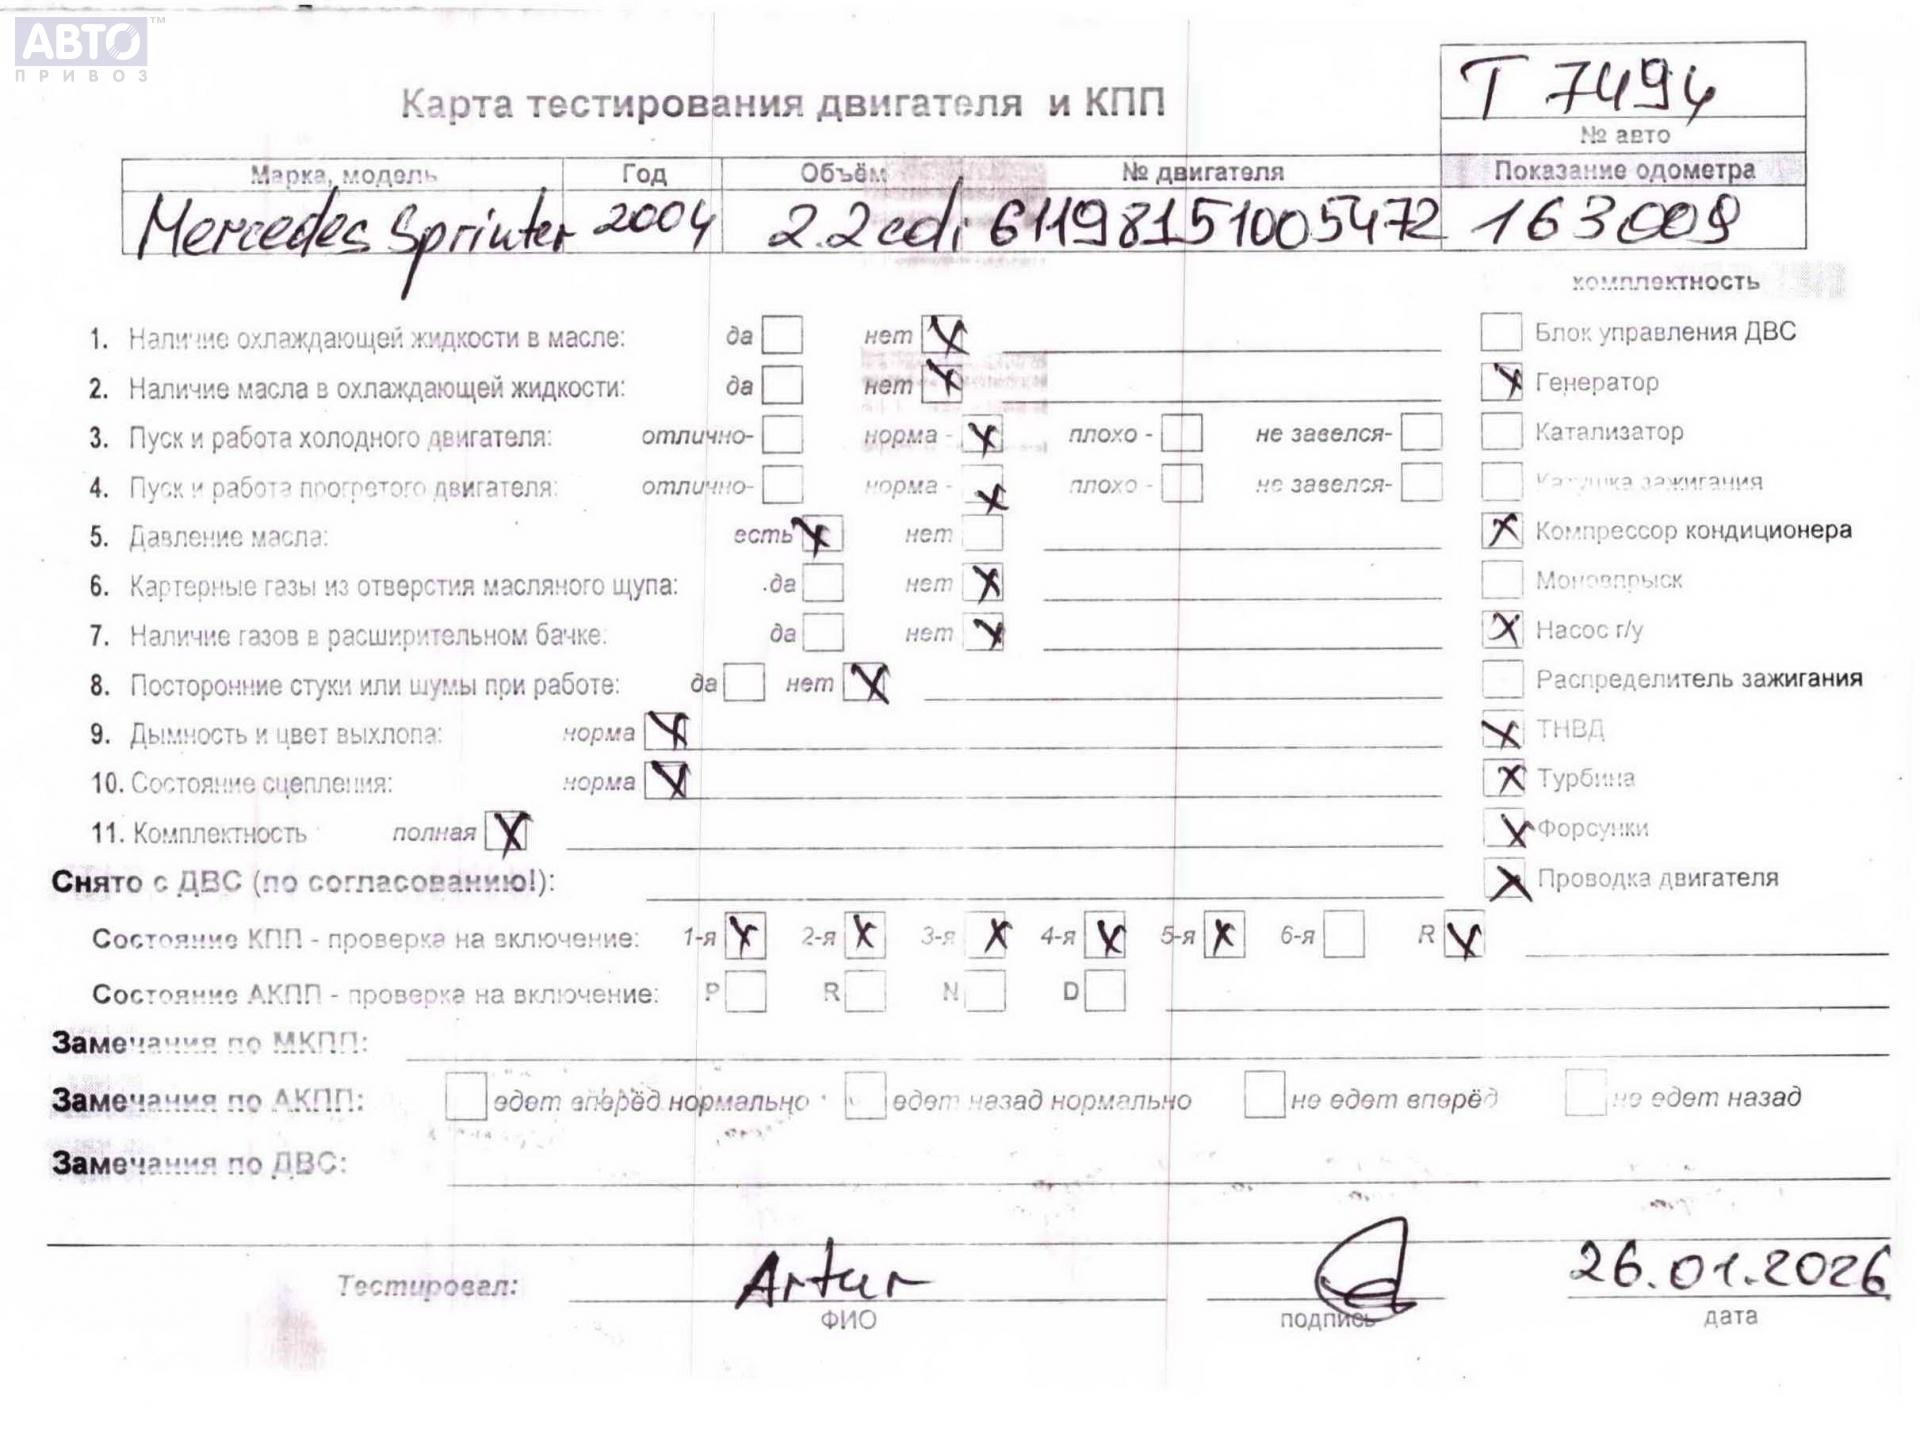 АВТО™
ПРИВОЗ
Т 7494
№ авто
Карта тестирования двигателя и КПП
Марка, модель Год Объём № двигателя Показание одометра
Mercedes Sprinter 2004 2.2 cdi 61198151005472 163009
комплектность
1. Наличие охлаждающей жидкости в масле: да нет X Блок управления ДВС
2. Наличие масла в охлаждающей жидкости: да нет X X Генератор
3. Пуск и работа холодного двигателя: отлично- норма - X плохо - не завелся- Катализатор
4. Пуск и работа прогретого двигателя: отлично- норма - X плохо - не завелся- Катушка зажигания
5. Давление масла: есть X нет X Компрессор кондиционера
6. Картерные газы из отверстия масляного щупа: да нет X Моновпрыск
7. Наличие газов в расширительном бачке: да нет X X Насос г/у
8. Посторонние стуки или шумы при работе: да нет X Распределитель зажигания
9. Дымность и цвет выхлопа: норма X X ТНВД
10. Состояние сцепления: норма X X Турбина
11. Комплектность полная X X Форсунки
Снято с ДВС (по согласованию!): X Проводка двигателя
Состояние КПП - проверка на включение: 1-я X 2-я X 3-я X 4-я X 5-я X 6-я R X
Состояние АКПП - проверка на включение: P R N D
Замечания по МКПП:
Замечания по АКПП: едет вперёд нормально едет назад нормально не едет вперёд не едет назад
Замечания по ДВС:
Тестировал: Artur 26.01.2026
ФИО подпись дата